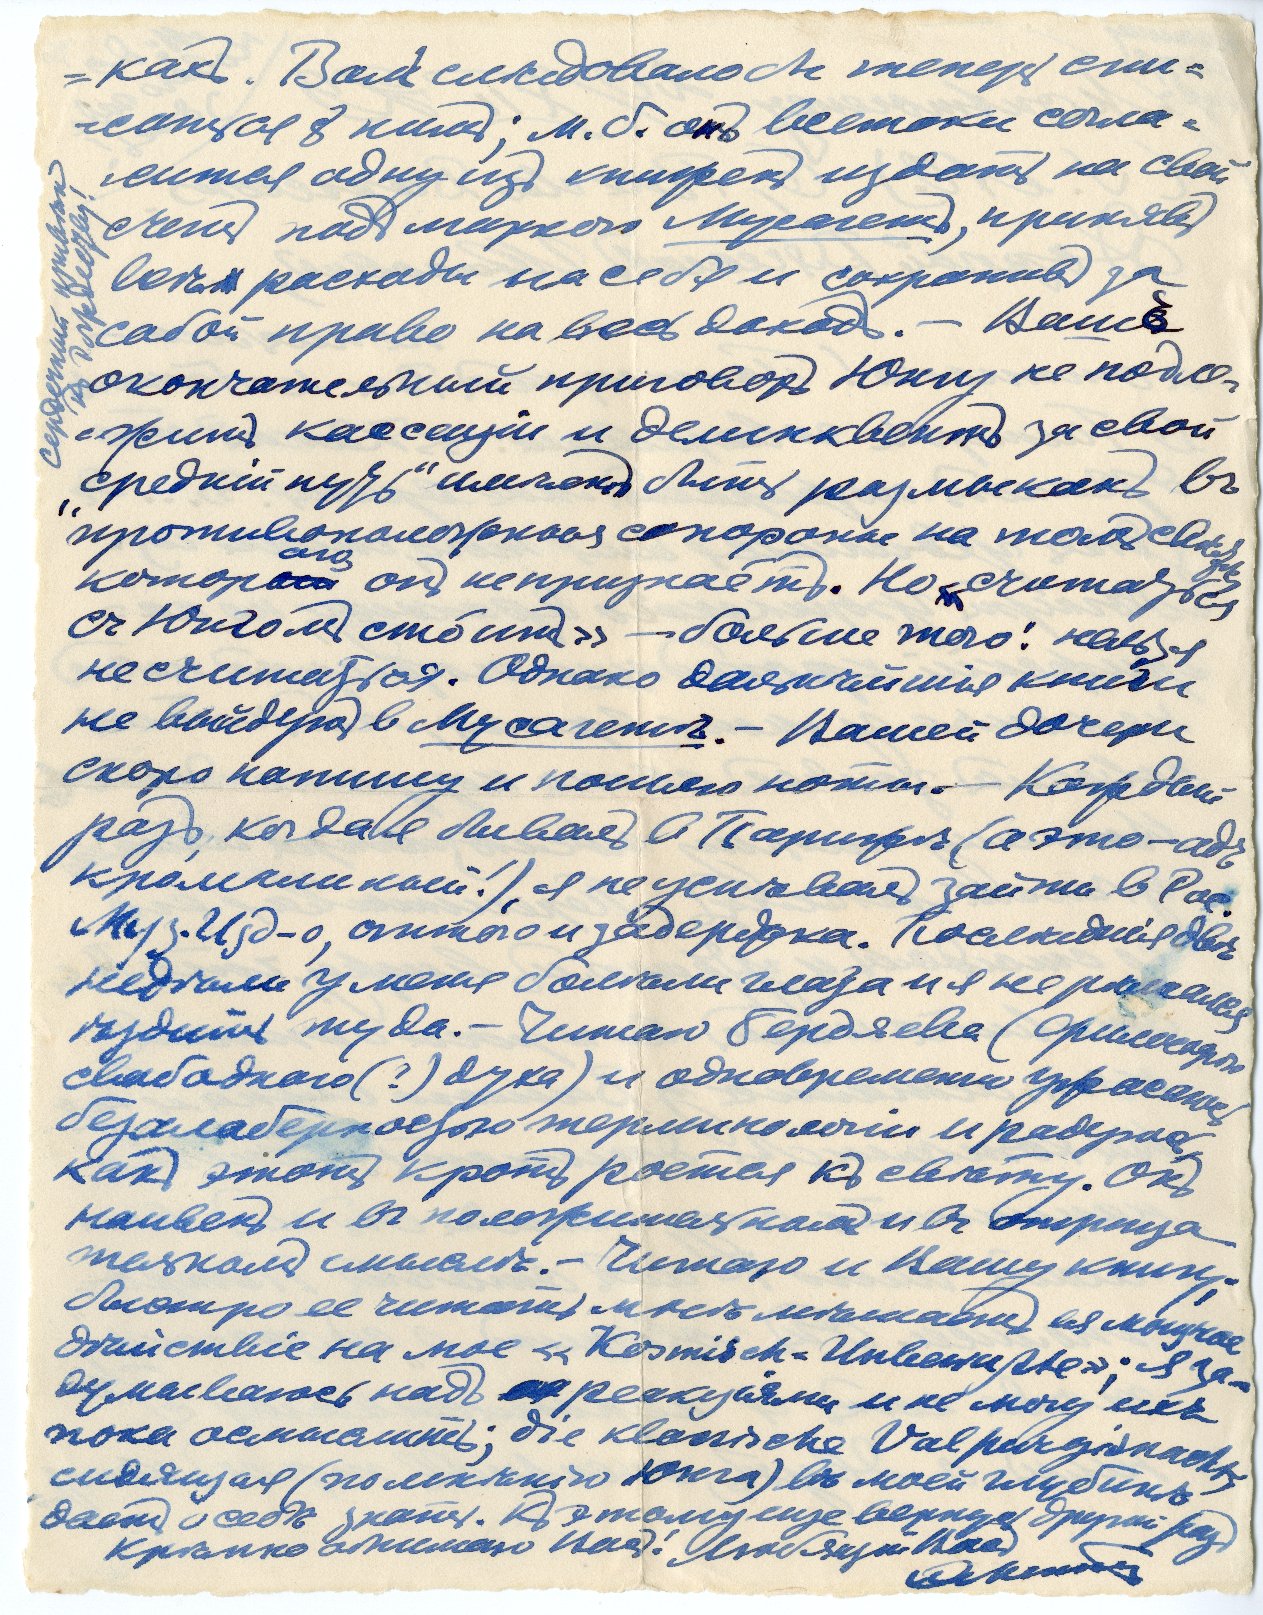 =какъ. Вамъ слѣдовало бы теперь спи=
=саться с нимъ; м. б. онъ всетаки согла=
сится одну изъ книжекъ издать на свой
счетъ подъ маркою Мусагетъ, принявъ
всѣ расходы на себя и сохранивъ за
собой право на весь доходъ. — Вашъ
окончательный приговоръ Юнгу не подле=
=житъ кассаціи и делинквентъ за свой
„средній путь“ имѣетъ быть размыканъ въ
противоположныя стороны на томъ
котораго онъ не признаётъ. Но «считаться
съ Юнгомъ сто́итъ» — больше того: нельзя
не считаться. Однако дальнѣйшія книги
не выйдутъ в Мусагетѣ. — Вашей дочери
скоро напишу и пошлю ноты. — Каждый
разъ, когда я бываю в Парижѣ (а это — адъ
кромѣшный!), я не успѣваю зайти в Рос.
Муз. Изд-о, оттого и задержка. Послѣднія двѣ
недѣли у меня болѣли глаза и я не рѣшался
ѣздить туда. — Читаю Бердяева (Философію
свободнаго (?) духа) и одновременно ужасаюсь
безалаберностью терминологіи и радуюсь,
какъ этотъ кротъ роется къ свѣту. Онъ
наивенъ и въ положительномъ и въ отрица
тельномъ смыслѣ. — Читаю и Вашу книгу;
быстро ее читать мнѣ мѣшаетъ ея могучее
дѣйствіе на мое «Kosmisch-Unbewußte»; я за=
думываюсь надъ реакціями и не могу ихъ
пока осмыслить; die klassische Valpurgisnacht,
сидящая (по мнѣнію Юнга) въ моей глубинѣ
даетъ о себѣ знать. Къ этому еще вернусь другой разъ
Крѣпко обнимаю Васъ! Любящій Васъ
Сердечный привѣтъ